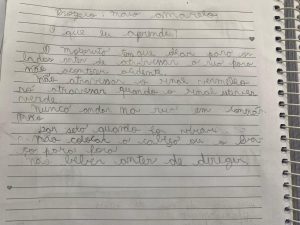 Projeto: maio amarelo
O que eu aprendi?
O motorista tem que olhar para os
lados antes de atravessar a rua para
não acontecer acidente.
Não atravessar o sinal vermelho
só atravessar quando o sinal estiver
verde.
Nunca andar na rua em
Dar seta quando for virar.
Não colocar a cabeça ou o bra
ço para fora
Não beber antes de dirigir